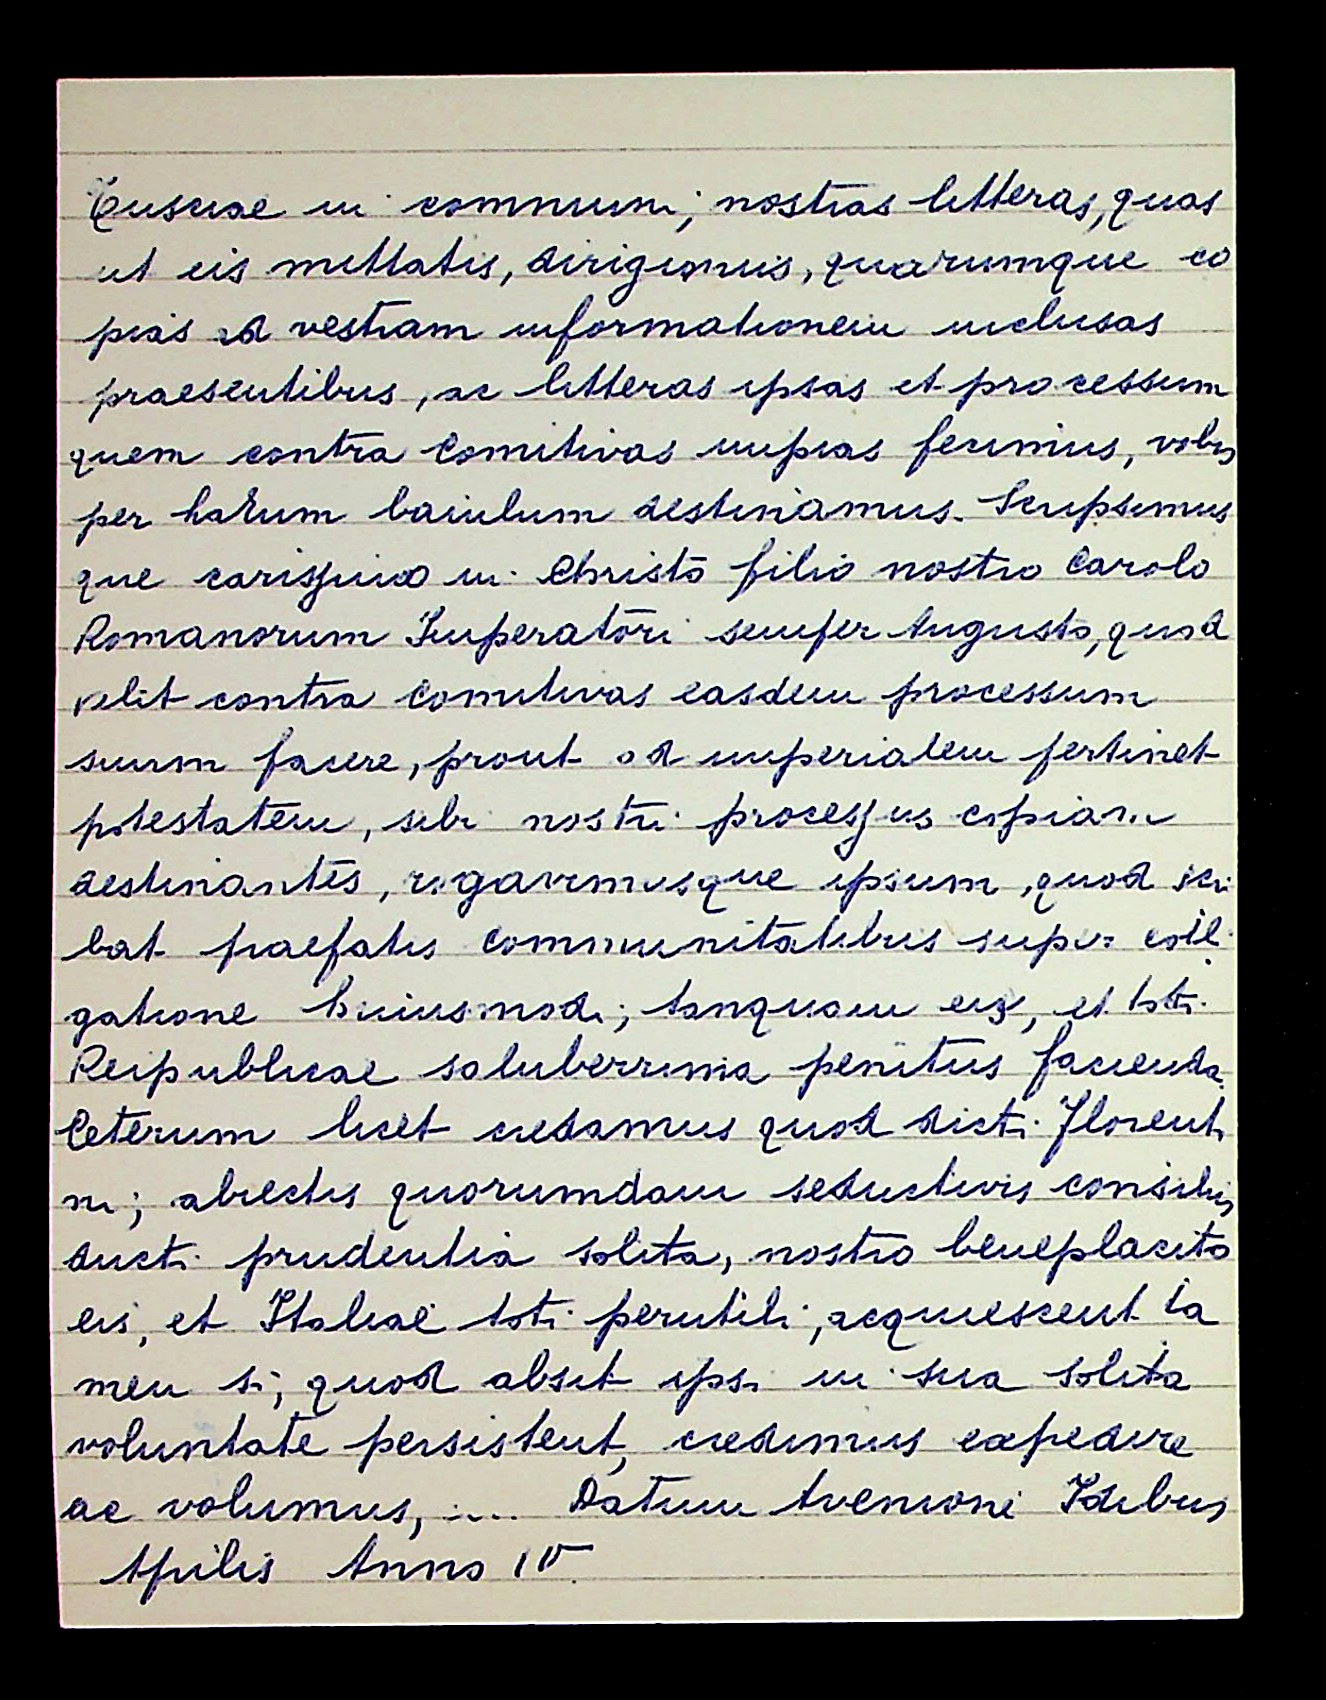 Tusciae in communi, nostras litteras, quas
ut eis mittatis, dirigimus, quarumque co
pias ad vestram informationem inclusas
praesentibus, ac litteras ipsas et processum
quem contra Comitivas impias fecimus, vobis
per harum baiulum destinamus. Scripsimus
que carissimo in Christo filio nostro Carolo
Romanorum Imperatori semper Augusto, quod
velit contra Comitivas easdem processum
suum facere, prout ad imperialem pertinet
potestatem, sibi nostri processus copiam
destinantes, rogavimusque ipsum, quod scri
bat praefatis Communitatibus super coll
gatione huiusmodi; tanquam eis, et toti
Reipublicae saluberrima penitus facienda.
Ceterum licet credamus quod dicti Florenti
ni; abiectis quorumdam seductivis consiliis
ducti prudentia solita, nostro beneplacito
eis, et Italiae toti perutili, acquiescent ta
men si, quod absit ipsi in sua solita
voluntate persistent, credimus expedire
ac volumus, .... Datum Avenioni Idibus
Aprilis Anno IV.